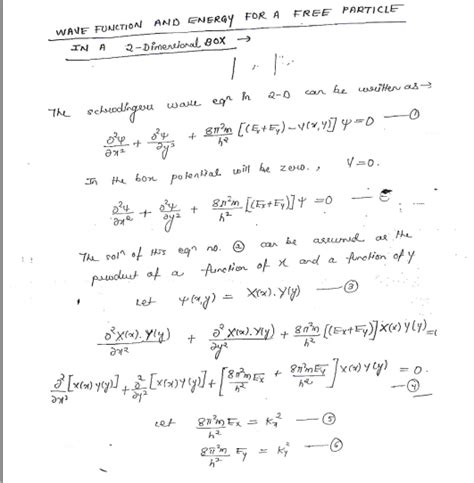 WAVE FUNCTION AND ENERGY FOR A FREE PARTICLE
IN A 2-Dimensional BOX →
The schrodingers wave eqn in 2-D can be written as →
∂²ψ/∂x² + ∂²ψ/∂y² + 8π²m/h² [(Ex+Ey) - V(x,y)] ψ = 0 — ①
In the box potential will be zero., V=0.
∂²ψ/∂x² + ∂²ψ/∂y² + 8π²m/h² [(Ex+Ey)] ψ = 0 —
The soln of this eqn no. ② can be assumed as the
product of a function of x and a function of y
Let ψ(x,y) = X(x).Y(y) — ③
∂²X(x).Y(y)/∂x² + ∂²X(x).Y(y)/∂y² + 8π²m/h² [(Ex+Ey)] X(x) Y(y) =
∂²/∂x² [X(x) Y(y)] + ∂²/∂y² [X(x) Y(y)] + [8π²mEx/h² + 8π²mEy/h²] X(x) Y(y) = 0. — ④
let 8π²m/h² Ex = Kx² — ⑤
8π²m/h² Ey = Ky² — ⑥